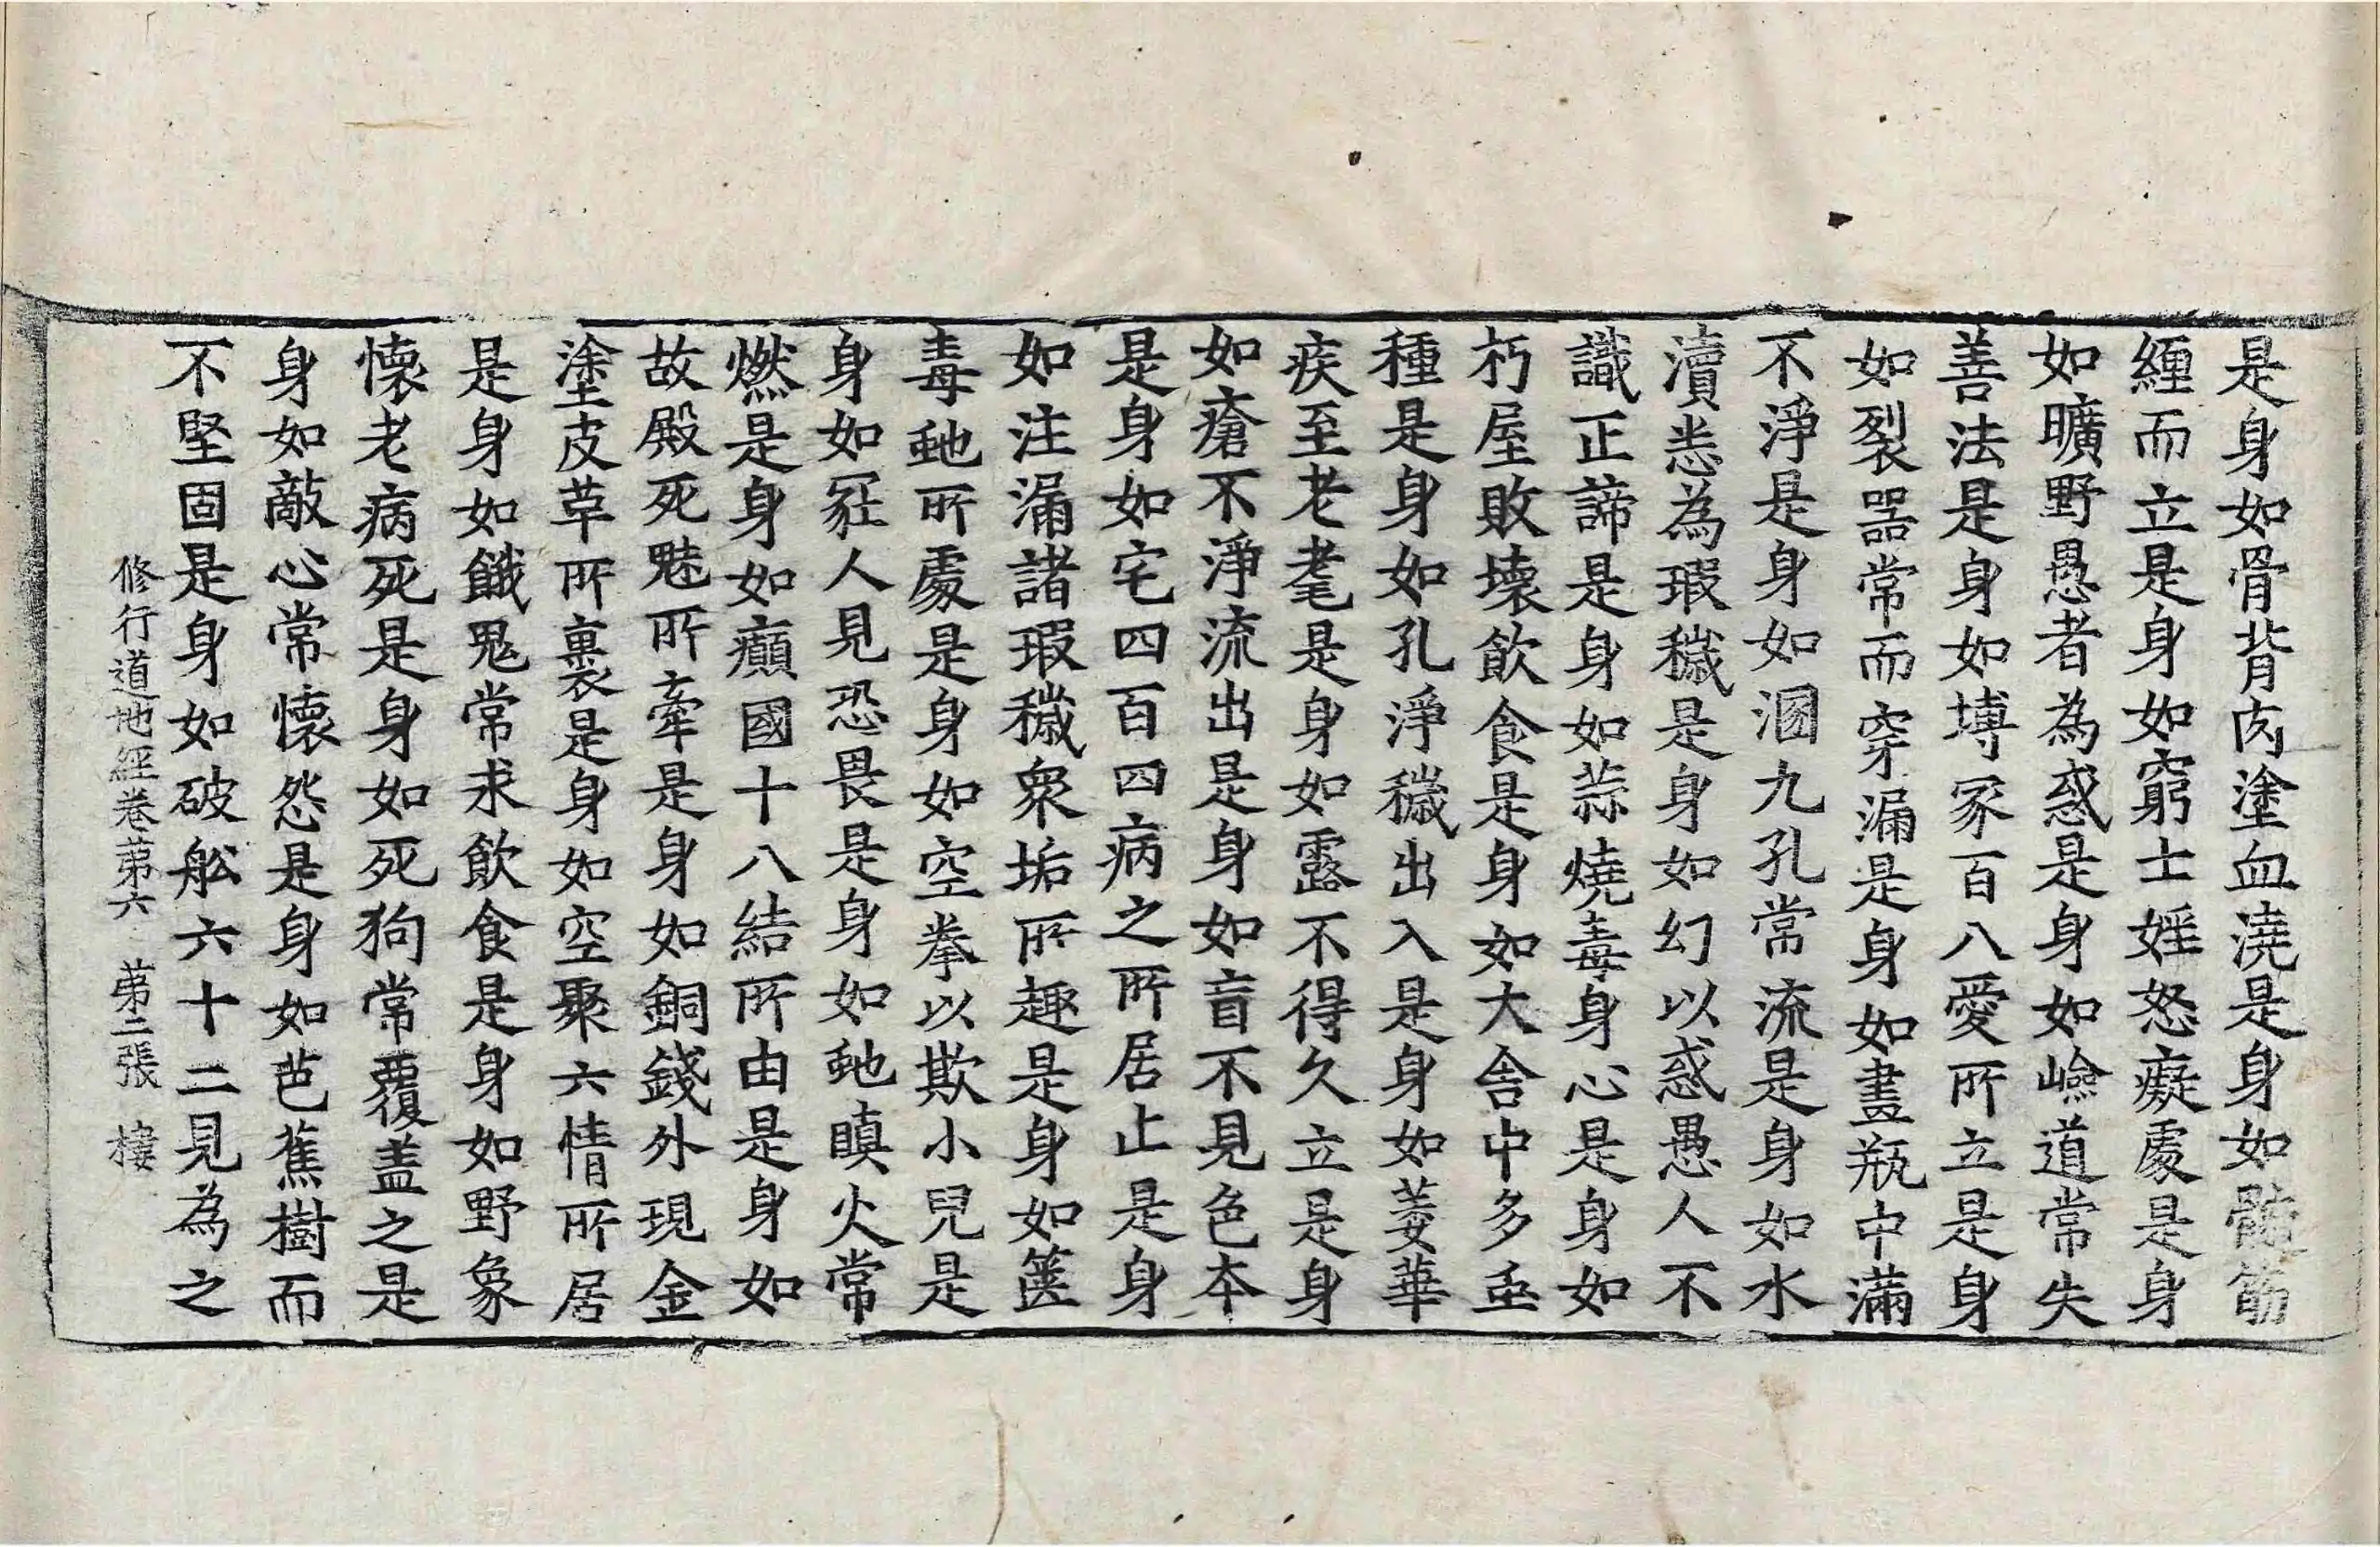 是身如骨背肉塗血澆是身如髓筋
纏而立是身如窮士婬怒癡處是身
如曠野愚者為惑是身如嶮道常失
善法是身如塼冢百八愛所立是身
如裂器常而穿漏是身如畫瓶中滿
不淨是身如溷九孔常流是身如水
瀆恚為瑕穢是身如幻以惑愚人不
識正諦是身如蒜燒毒身心是身如
朽屋敗壞飲食是身如大舍中多虫
種是身如孔淨穢出入是身如萎華
疾至老耄是身如露不得久立是身
如瘡不淨流出是身如盲不見色本
是身如宅四百四病之所居止是身
如注漏諸瑕穢衆垢所趣是身如篋
毒虵所處是身如空拳以欺小兒是
身如冢人見恐畏是身如虵瞋火常
燃是身如癲國十八結所由是身如
故殿死魅所牽是身如銅錢外現金
塗皮革所裹是身如空聚六情所居
是身如餓鬼常求飲食是身如野象
懷老病死是身如死狗常覆蓋之是
身如敵心常懷怨是身如芭蕉樹而
不堅固是身如破船六十二見為之
修行道地經卷第六 第二張 棲